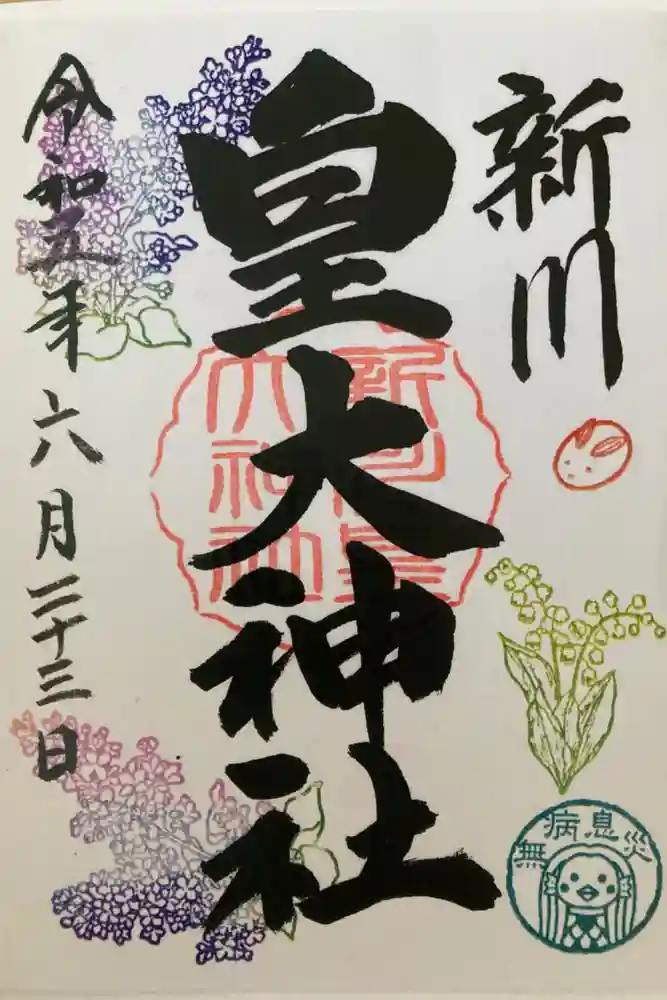 新川
皇大神社
令和五年六月二十三日
新川皇
大神社
無病息災